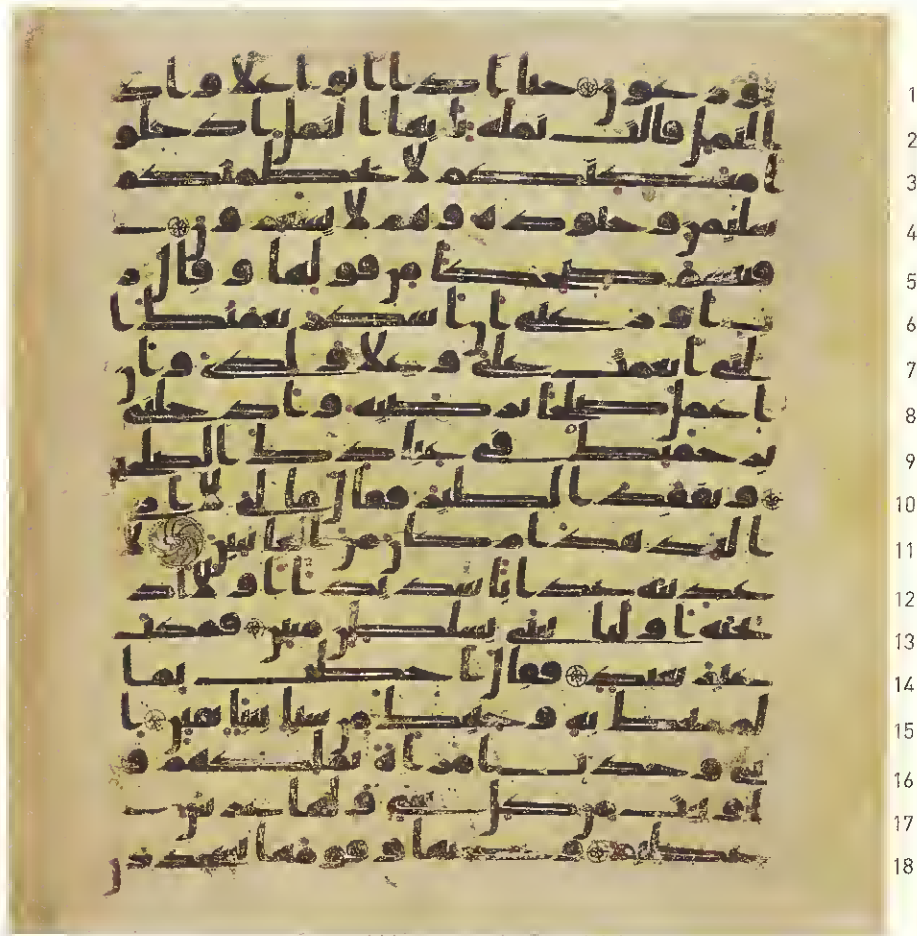 يوزعون حتا اذا اتوا علا واد
النمل قالت نملة يايها النمل ادخلو
ا مسكنكم لا يحطمنكم
سليمن وجنوده وهم لا يشعرون
فتبسم ضحكا من قولها وقال ر
ب اوزعني ان اشكر نعمتك ا
لتي انعمت علي وعلا ولدي وان
اعمل صلحا ترضيه وادخلني
برحمتك في عبادك الصلحين
وتفقد الطير فقال ما لي لا ارى
الهدهد ام كان من الغائبين لا
عذبنه عذابا شديدا او لااذ
بحنه او لياتيني بسلطن مبين فمكث
غير بعيد فقال احطت بما
لم تحط به وجئتك من سبا بنبا يقين ا
ني وجدت امراة تملكهم و
اوتيت من كل شي ولها عرش
عظيم وجدتها وقومها يسجدون
1
2
3
4
5
6
7
8
9
10
11
12
13
14
15
16
17
18